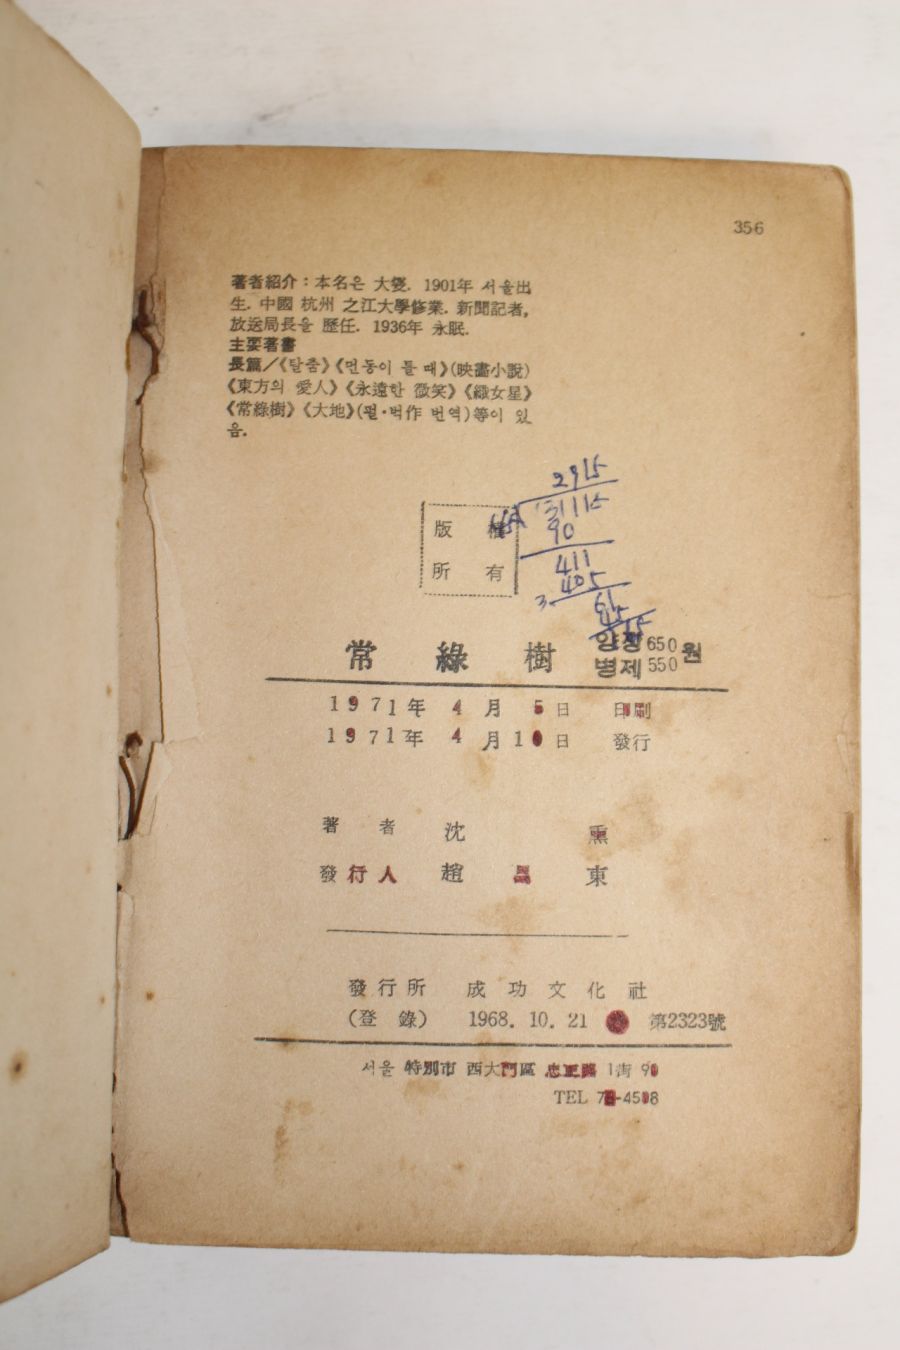 356
著者紹介 : 本名은 大燮. 1901年 서울出
生. 中國 杭州 之江大學修業. 新聞記者,
放送局長을 歷任. 1936年 永眠.
主要著書
長篇/《탈춤》《먼동이 틀 때》(映畵小說)
《東方의 愛人》《永遠한 微笑》《織女星》
《常綠樹》《大地》(펄·벅作 번역)等이 있
음.
2915
31115
90
411
405
版 權
所 有
常 綠 樹 양장 650 원
병제 550
1971年 4月 5日 印刷
1971年 4月 10日 發行
著 者 沈 熏
發行人 趙 東
發行所 成功文化社
(登 錄) 1968. 10. 21 第2323號
서울 特別市 西大門區 忠正路 1街 90
TEL 4508